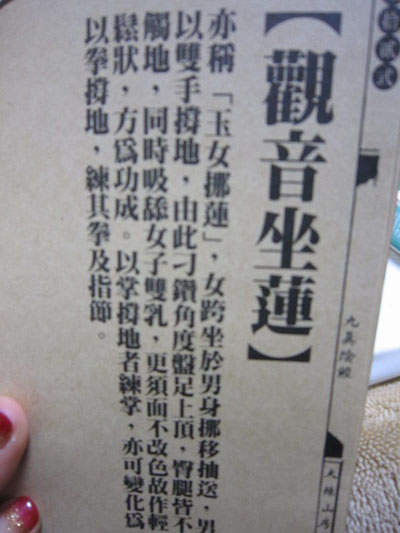 拾貳式
【觀音坐蓮】
亦稱「玉女挪蓮」，女跨坐於男身挪移抽送，男
以雙手撐地，由此刁鑽角度盤足上頂，臀腿皆不
觸地，同時吸舔女子雙乳，更須面不改色故作輕
鬆狀，方爲功成。以掌撐地者練掌，亦可變化爲
以拳撐地，練其拳及指節。